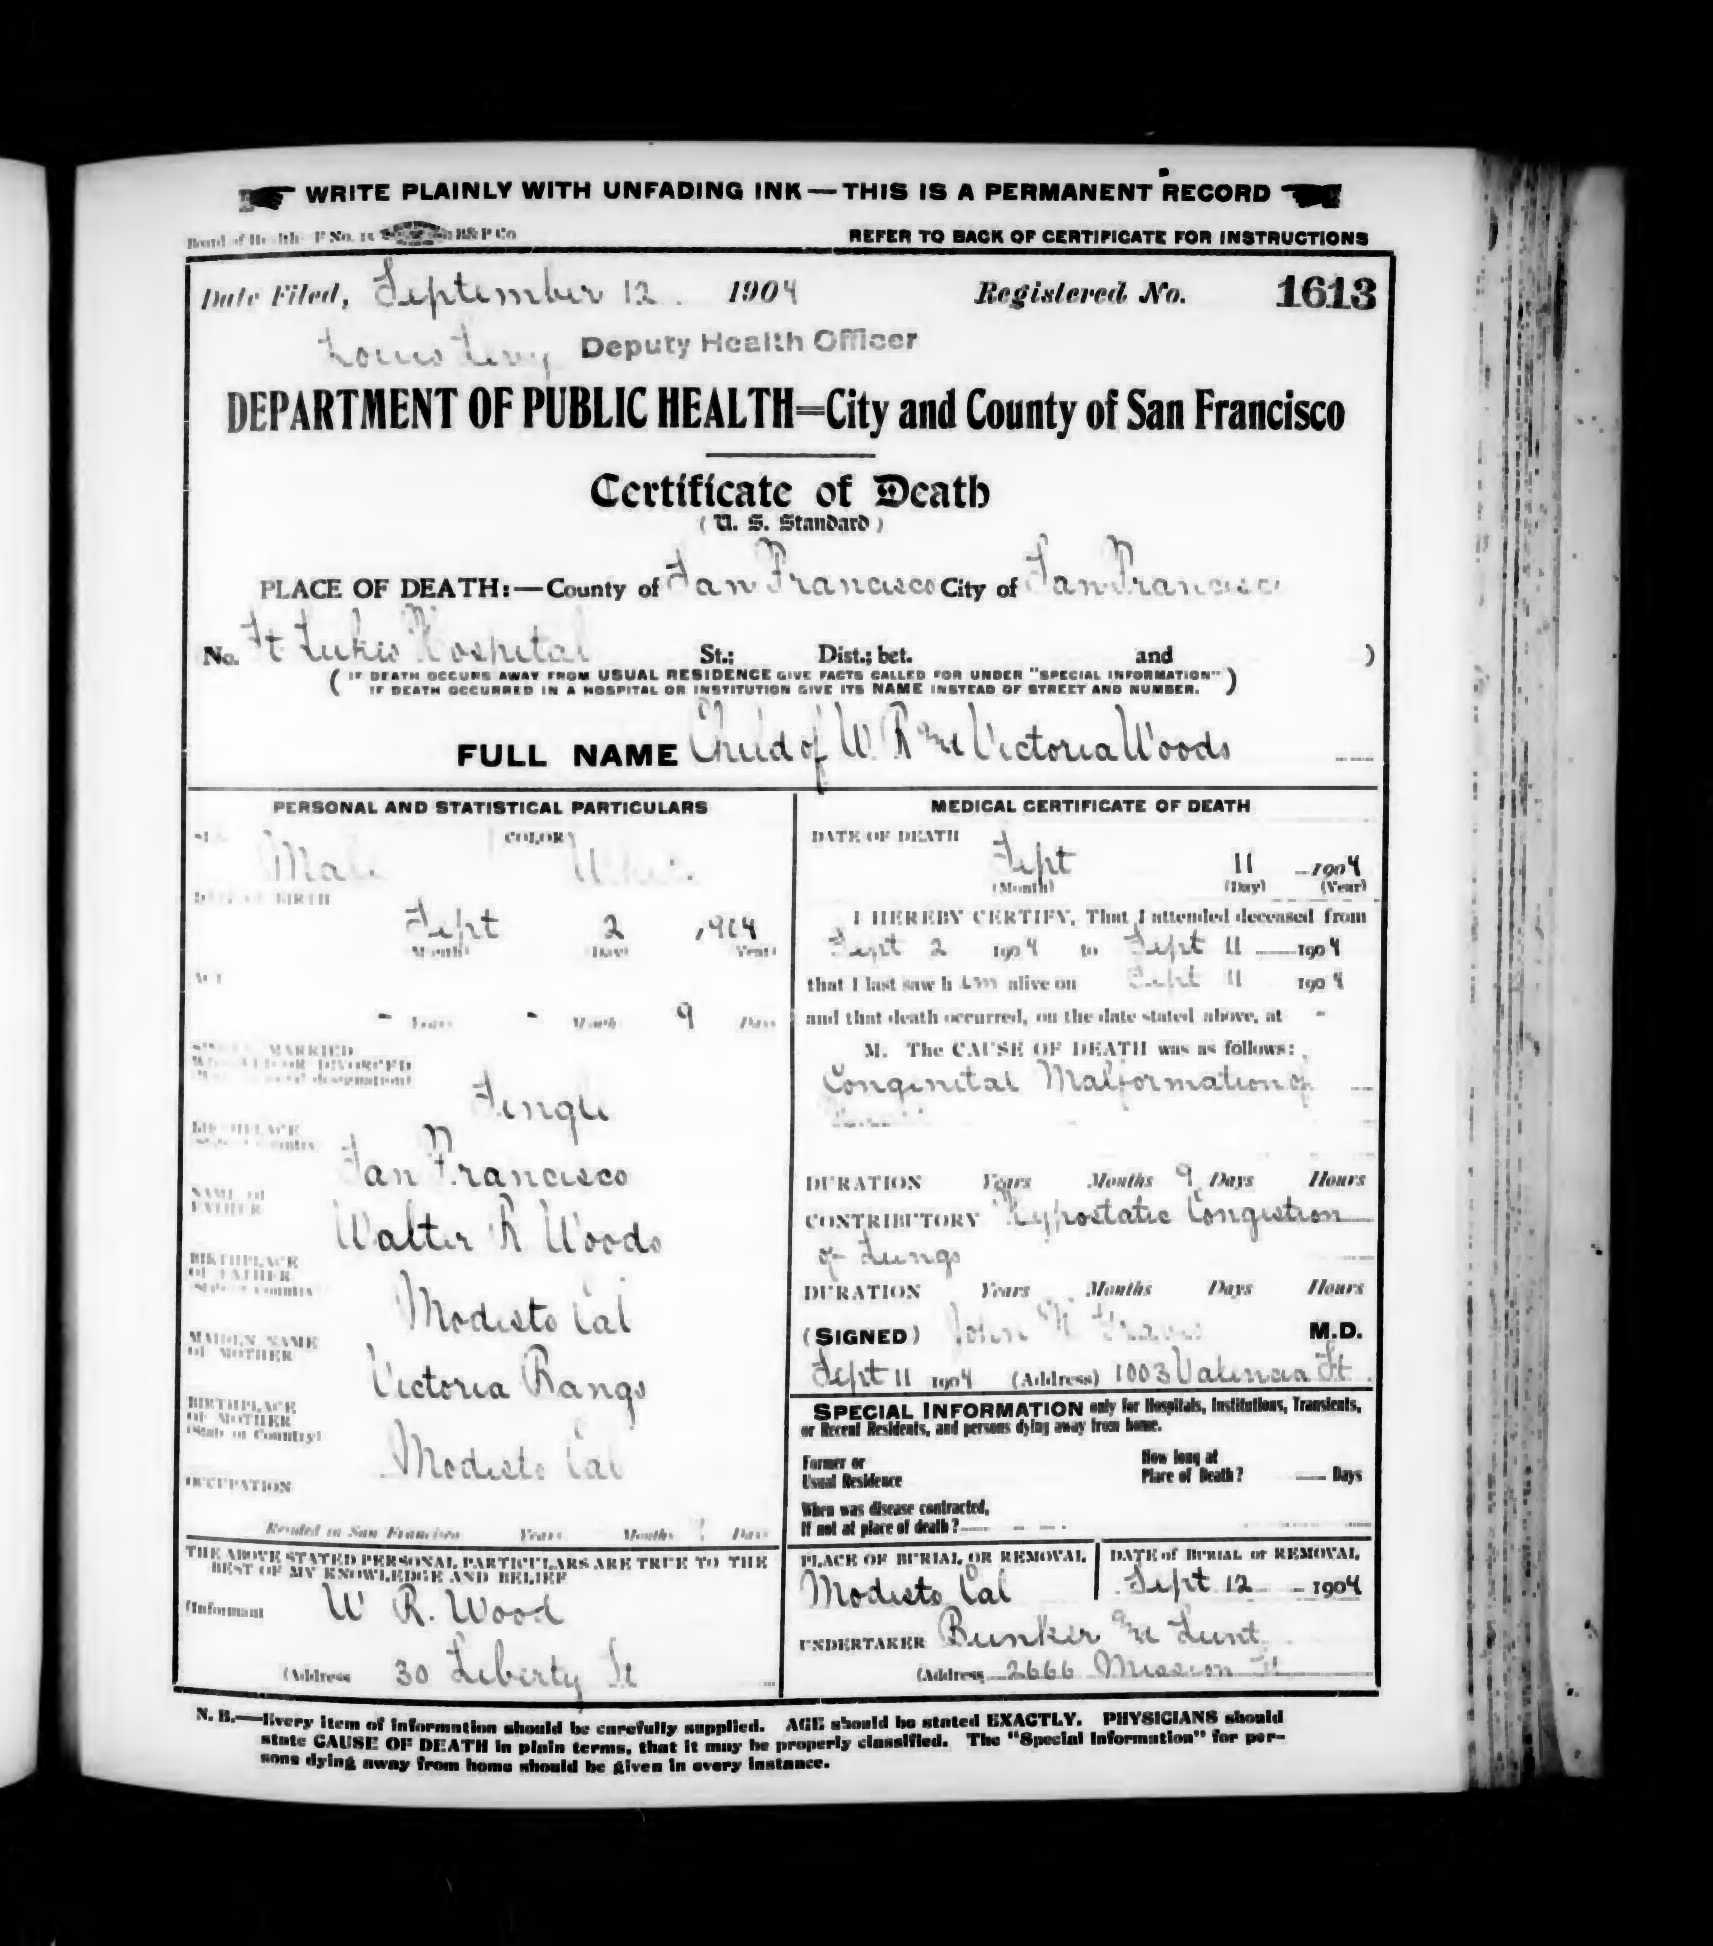 WRITE PLAINLY WITH UNFADING INK — THIS IS A PERMANENT RECORD
Board of Health F No. 15 B&P Co
REFER TO BACK OF CERTIFICATE FOR INSTRUCTIONS
Date Filed, September 12. 1904 Registered No. 1613
Louis Levy Deputy Health Officer
DEPARTMENT OF PUBLIC HEALTH=City and County of San Francisco
Certificate of Death
( U. S. Standard )
PLACE OF DEATH:—County of San Francisco City of San Francisco
No. St Lukes Hospital St.; Dist.; bet. and )
( IF DEATH OCCURS AWAY FROM USUAL RESIDENCE GIVE FACTS CALLED FOR UNDER "SPECIAL INFORMATION" )
IF DEATH OCCURRED IN A HOSPITAL OR INSTITUTION GIVE ITS NAME INSTEAD OF STREET AND NUMBER.
FULL NAME Child of W. R. and Victoria Woods
PERSONAL AND STATISTICAL PARTICULARS
COLOR
Male White
DATE OF BIRTH
Sept 2 1904
(Month) (Day) (Year)
AGE
- Years - Months 9 Days
SINGLE, MARRIED
WIDOWED OR DIVORCED
Single
BIRTHPLACE
San Francisco
NAME OF
FATHER
Walter R Woods
BIRTHPLACE
OF FATHER
(State or Country)
Modesto Cal
MAIDEN NAME
OF MOTHER
Victoria Rangs
BIRTHPLACE
OF MOTHER
(State or Country)
Modesto Cal
OCCUPATION
Resided in San Francisco Years Months Days
THE ABOVE STATED PERSONAL PARTICULARS ARE TRUE TO THE
BEST OF MY KNOWLEDGE AND BELIEF
(Informant W R. Wood
(Address 30 Liberty St
MEDICAL CERTIFICATE OF DEATH
DATE OF DEATH
Sept 11 1904
(Month) (Day) (Year)
I HEREBY CERTIFY, That I attended deceased from
Sept 2 1904 to Sept 11 1904
that I last saw h im alive on Sept 11 1904
and that death occurred, on the date stated above, at -
M. The CAUSE OF DEATH was as follows:
Congenital Malformation of
DURATION Years Months 9 Days Hours
CONTRIBUTORY Hypostatic Congestion
of Lungs
DURATION Years Months Days Hours
(SIGNED) John N. M.D.
Sept 11 1904 (Address) 1003 Valencia St.
SPECIAL INFORMATION only for Hospitals, Institutions, Transients,
or Recent Residents, and persons dying away from home.
Former or
Usual Residence
How long at
Place of Death? Days
When was disease contracted,
If not at place of death?
PLACE OF BURIAL OR REMOVAL
Modesto Cal
DATE of BURIAL or REMOVAL
Sept 12 1904
UNDERTAKER Bunker and Lunt
(Address 2666 Mission St
N. B.—Every item of information should be carefully supplied. AGE should be stated EXACTLY. PHYSICIANS should
state CAUSE OF DEATH in plain terms, that it may be properly classified. The "Special Information" for per-
sons dying away from home should be given in every instance.